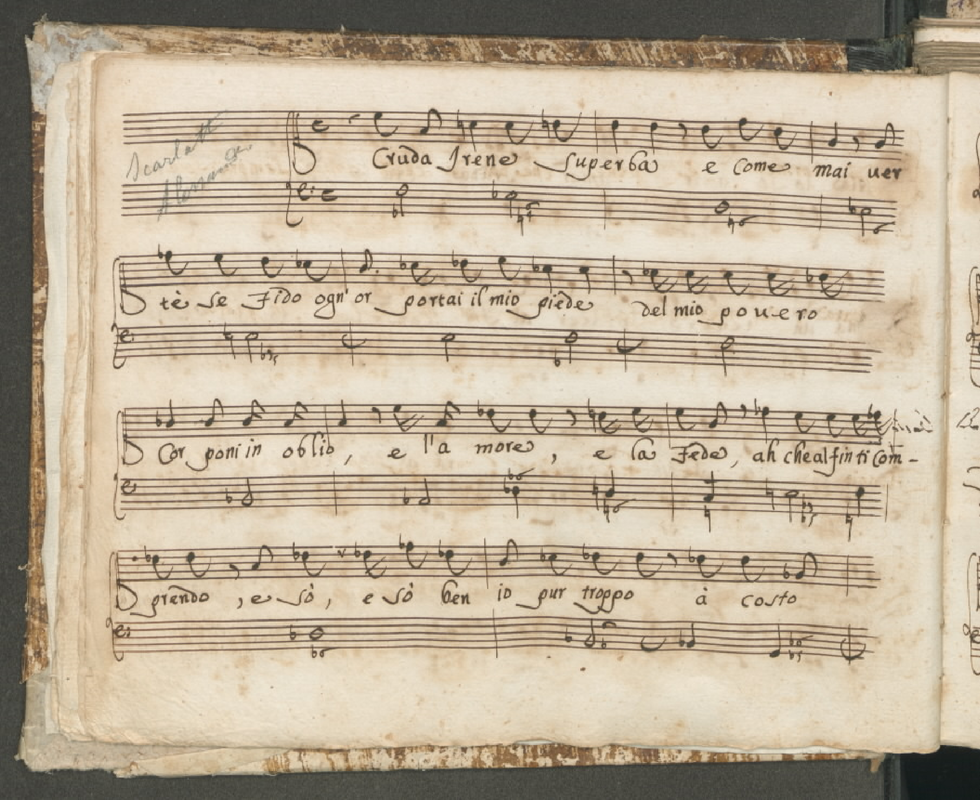 Scarlatti
Alessandro
Cruda Irene superba e come mai uer
tè se Fido ogn'or portai il mio piede del mio pouero
Cor poni in oblio, e l'a more, e la Fede, ah che al fin ti Com-
prendo, e sò, e sò ben io pur troppo à costo